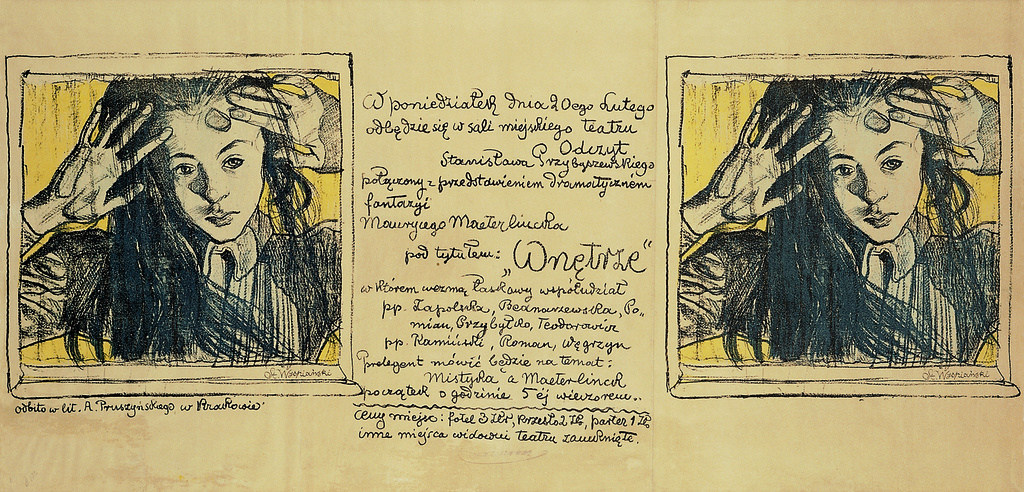 W poniedziałek dnia 20ego Lutego
odbędzie się w sali miejskiego teatru
Odczyt
Stanisława Przybyszewskiego
połączony z przedstawieniem dramatycznem
fantazyi
Maurycego Maeterlincka
pod tytułem: „Wnętrze"
w którem wezmą łaskawy współudział
pp. Zapolska, Bednarzewska, Po-
mian, Przybyłko, Teodorowicz
pp. Kamiński, Roman, Węgrzyn
Prelegent mówić będzie na temat:
Mistyka a Maeterlinck
początek o godzinie 5ej wieczorem..
Ceny miejsc: fotel 3 złr, krzesło 2 zł, parter 1 zł,
inne miejsca widowni teatru zamknięte.
St. Wyspiański
St. Wyspiański
odbito w lit. A. Pruszyńskiego w Krakowie